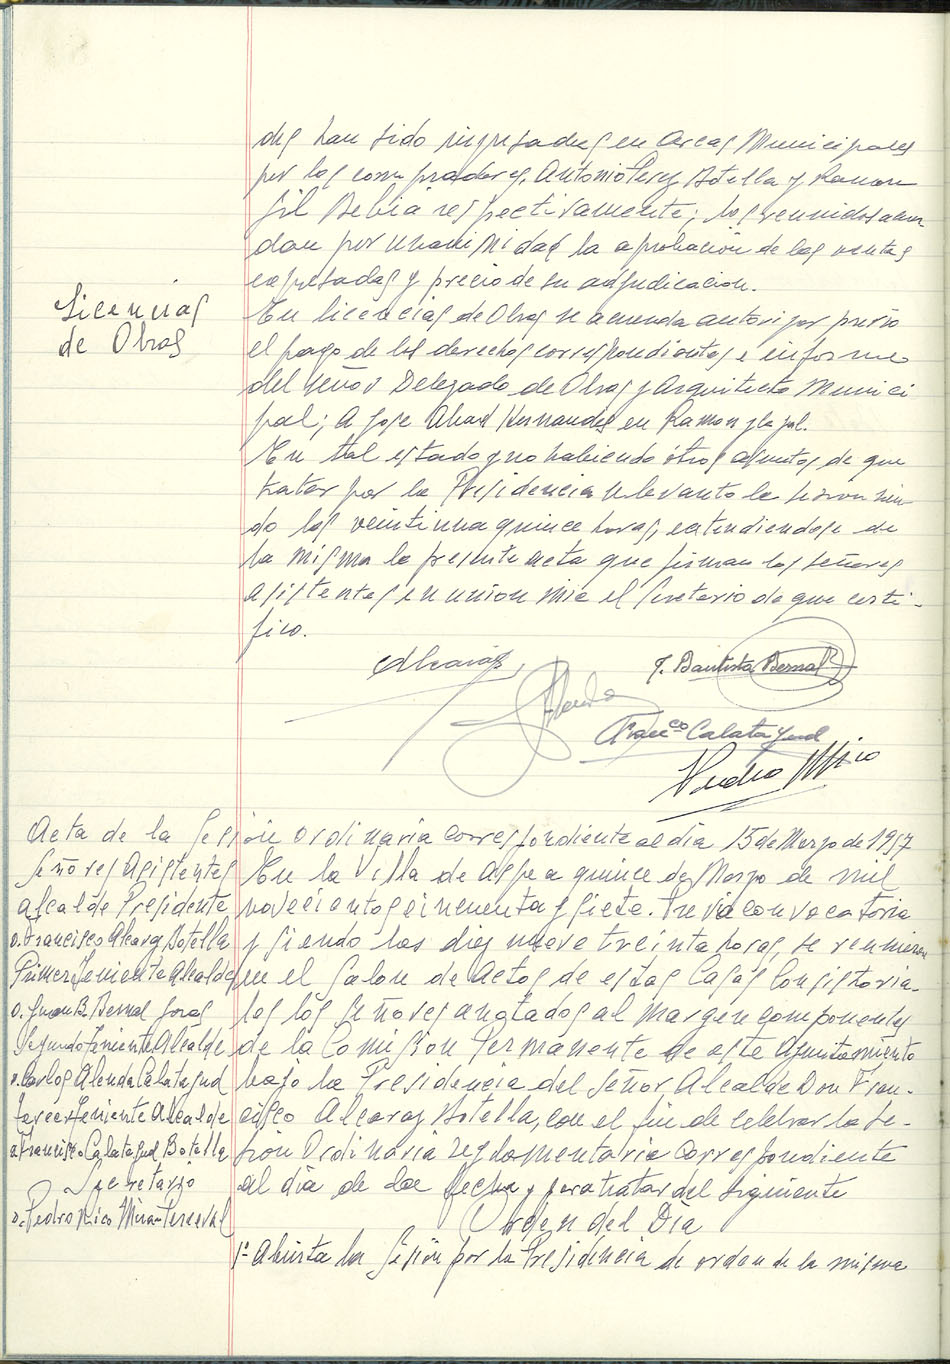 des han sido ingresadas en arcas Municipales
por los compradores, Antonio Perez Botella y Ramon
Gil Bebia respectivamente; los reunidos acuer
dan por unanimidad la aprobación de las ventas
expresadas y precio de su adjudicacion.
Licencias
de Obras
En licencias de Obras se acuerda autorizar previo
el pago de los derechos correspondientes e informe
del señor Delegado de Obras y Arquitecto Munici
pal; A Jose Abad Hernandez en Ramon y Cajal.
En tal estado y no habiendo otros asuntos de que
tratar por la Presidencia se levanto la sesion sien
do las veintiuna quince horas, extendiendose de
la misma la presente acta que firman los señores
asistentes en union mia el Secretario de que certi-
fico.
Alcaraz
J. Bautista Bernal
Alenda
Fran.co Calatayud
Pedro Mico
Acta de la Sesión ordinaria correspondiente al dia 15 de Marzo de 1957
Señores Asistentes
Alcalde Presidente
D. Francisco Alcaraz Botella
Primer Teniente Alcalde
D. Juan B. Bernal
Segundo Teniente Alcalde
D. Carlos Alenda Calatayud
Tercer Teniente Alcalde
D. Francisco Calatayud Botella
Secretario
D. Pedro
En la Villa de Aspe a quince de Marzo de mil
novecientos cincuenta y siete. Previa convocatoria
y siendo las diez nueve treinta horas, se reunieron
en el Salon de Actos de estas Casas Consistoria-
les los Señores anotados al margen componentes
de la Comision Permanente de este Ayuntamiento
bajo la Presidencia del Señor Alcalde Don Fran-
cisco Alcaraz Botella, con el fin de celebrar la se-
sion Ordinaria reglamentaria correspondiente
al dia de la fecha y para tratar del siguiente
Orden del Dia
1º- Abierta la Sesión por la Presidencia de orden de la misma